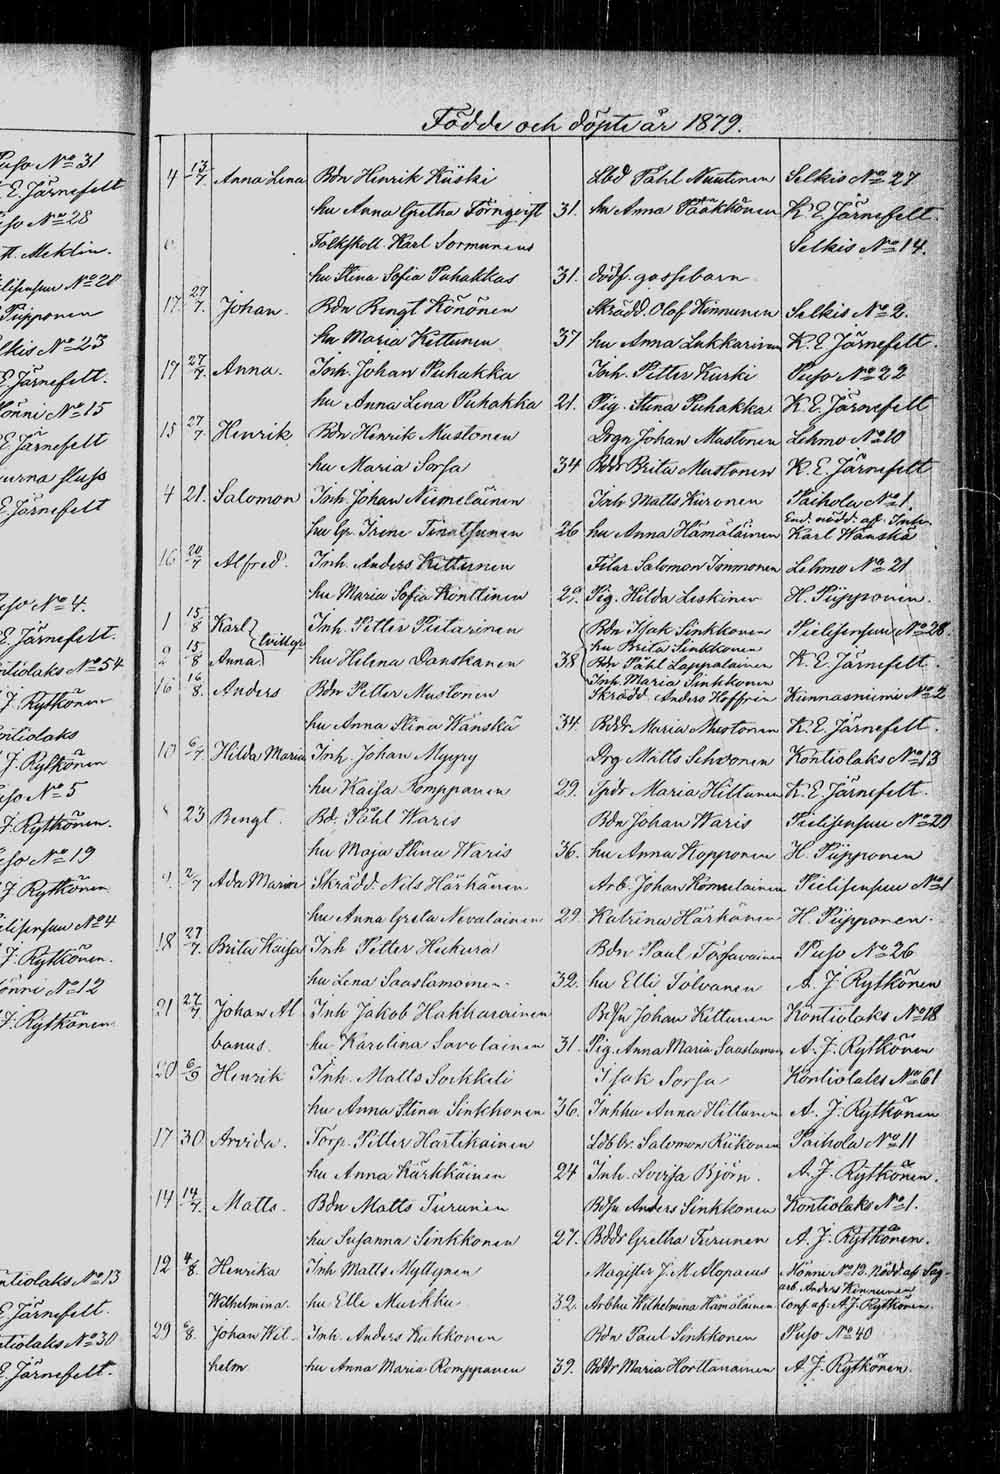 Födde och döpte år 1879.
Puso No 31
K. E. Järnefelt
Puso No 28
No 20
Piipponen
Selkis No 23
K. E. Järnefelt.
Mönni No 15
K. E. Järnefelt
K. E. Järnefelt
Puso No 4.
K. E. Järnefelt.
Kontiolaks No 54
A. J. Rytkönen
Kontiolaks
A. J. Rytkönen
Puso No 5
A. J. Rytkönen.
Puso No 19
A. J. Rytkönen
No 4
A. J. Rytkönen.
Mönni No 12
A. J. Rytkönen
Kontiolaks No 13
K. E. Järnefelt.
Kontiolaks No 30
K. E. Järnefelt.
4 13/7 Anna Lena Bdn Henrik Kiiski Lbd Påhl Nuutinen Selkis No 27
hu Anna Gretha Törnqvist 31. hu Anna Pääkkönen K. E. Järnefelt.
6. Folkskoll. Karl Sormunens Selkis No 14.
hu Stina Sofia Puhakkas 31. dödf. gossebarn
17. 27/7. Johan. Bdn Bengt Könönen Skrädd. Olof Kinnunen Selkis No 2.
hu Maria Kettunen 37 hu Anna Lukkarinen K. E Järnefelt.
17 27/7. Anna. Inh. Johan Puhakka Inh. Petter Kurki Puso No 22
hu Anna Lena Puhakka 21. Pig. Stina Puhakka K. E. Järnefelt
15 27/7 Henrik Bdn Henrik Mustonen Drgn Johan Mustonen Lehmo No 10
hu Maria Sorsa 34 Bddr Brita Mustonen K. E. Järnefelt
4 21. Salomon Inh. Johan Niimeläinen Inh Matts Kuronen Paihola No 1.
hu Gr. Irene 26 hu Anna Hämäläinen End. nödd. af Inh. Karl Wänskä
16 20/7 Alfred. Inh. Anders Kettunen Filar Salomon Immonen Lehmo No 21
hu Maria Sofia Konttinen 29. Pig. Hilda Leskinen H. Piipponen.
1 15/8 Karl } tvillgr Inh. Petter Pietarinen Bdn Isak Sinkkonen Pielisensuu No 28.
hu Brita Sinkkonen
2 15/8 Anna. hu Helena Danskanen 38 Bdn Påhl Lappalainen K. E. Järnefelt.
Inh. Maria Sinkkonen
16 16/8. Anders Bdn Petter Mustonen Skrädd. Anders Hoffrén Kunnasniemi No 2
hu Anna Stina Wänskä 34. Bddr Maria Mustonen K. E. Järnefelt.
10 6/7. Hilda Maria Inh. Johan Myyry Drg Matts Sehvonen Kontiolaks No 13
hu Kaisa Romppanen 29. Maria Hiltunen K. E. Järnefelt.
23 Bengt. Bd. Påhl Waris Bdn Johan Waris Pielisensuu No 20
hu Maja Stina Waris 36. hu Anna Kopponen H. Piipponen
2/7 Ada Maria Skrädd. Nils Härkänen Arb. Johan Romulainen Pielisensuu No 1
hu Anna Greta Nevalainen 29. Katrina Härkänen H. Piipponen.
18 27/7. Brita Kaisa Inh Petter Hukura Bdn Paul Törsavainen Puso No 26
hu Lena Saastamoinen. 32. hu Elli Tolvanen A. J. Rytkönen
21 27/7 Johan Al Inh Jakob Hakkarainen Bdsn Johan Kettunen Kontiolaks No 18
banus. hu Karolina Savolainen 31. Pig. Anna Maria Saastamoi A. J. Rytkönen
20 6/9 Henrik Inh. Matts Soikkeli Isak Sorsa Kontiolaks No 61
hu Anna Stina Sinkkonen 36. Inhhu Anna Hiltunen A. J. Rytkönen
17 30 Arvida. Torp. Petter Hartikainen Salomon Riikonen Paihola No 11
hu Anna Kärkkäinen 24 Inh. Lovisa Björn. A. J. Rytkönen.
14 14/7. Matts. Bdn Matts Turunen Bdsn Anders Sinkkonen Kontiolaks No 1.
hu Susanna Sinkkonen 27. Bddr Gretha Turunen A. J. Rytkönen.
12 4/8. Henrika Inh Matts Myllynen Magister J. M Alopaeus Mönni No 12. Nödd. af Såg-
arb. Anders Kinnunen
Wilhelmina. hu Elli Murkku 32. Arbhu Wilhelmina Hämäläinen conf. af. A. J. Rytkönen.
29 6/8. Johan Wil- Inh. Anders Kukkonen Bdn Paul Sinkkonen Puso No 40
helm hu Anna Maria Romppanen 39. Bddr Maria Horttanainen A. J. Rytkönen.